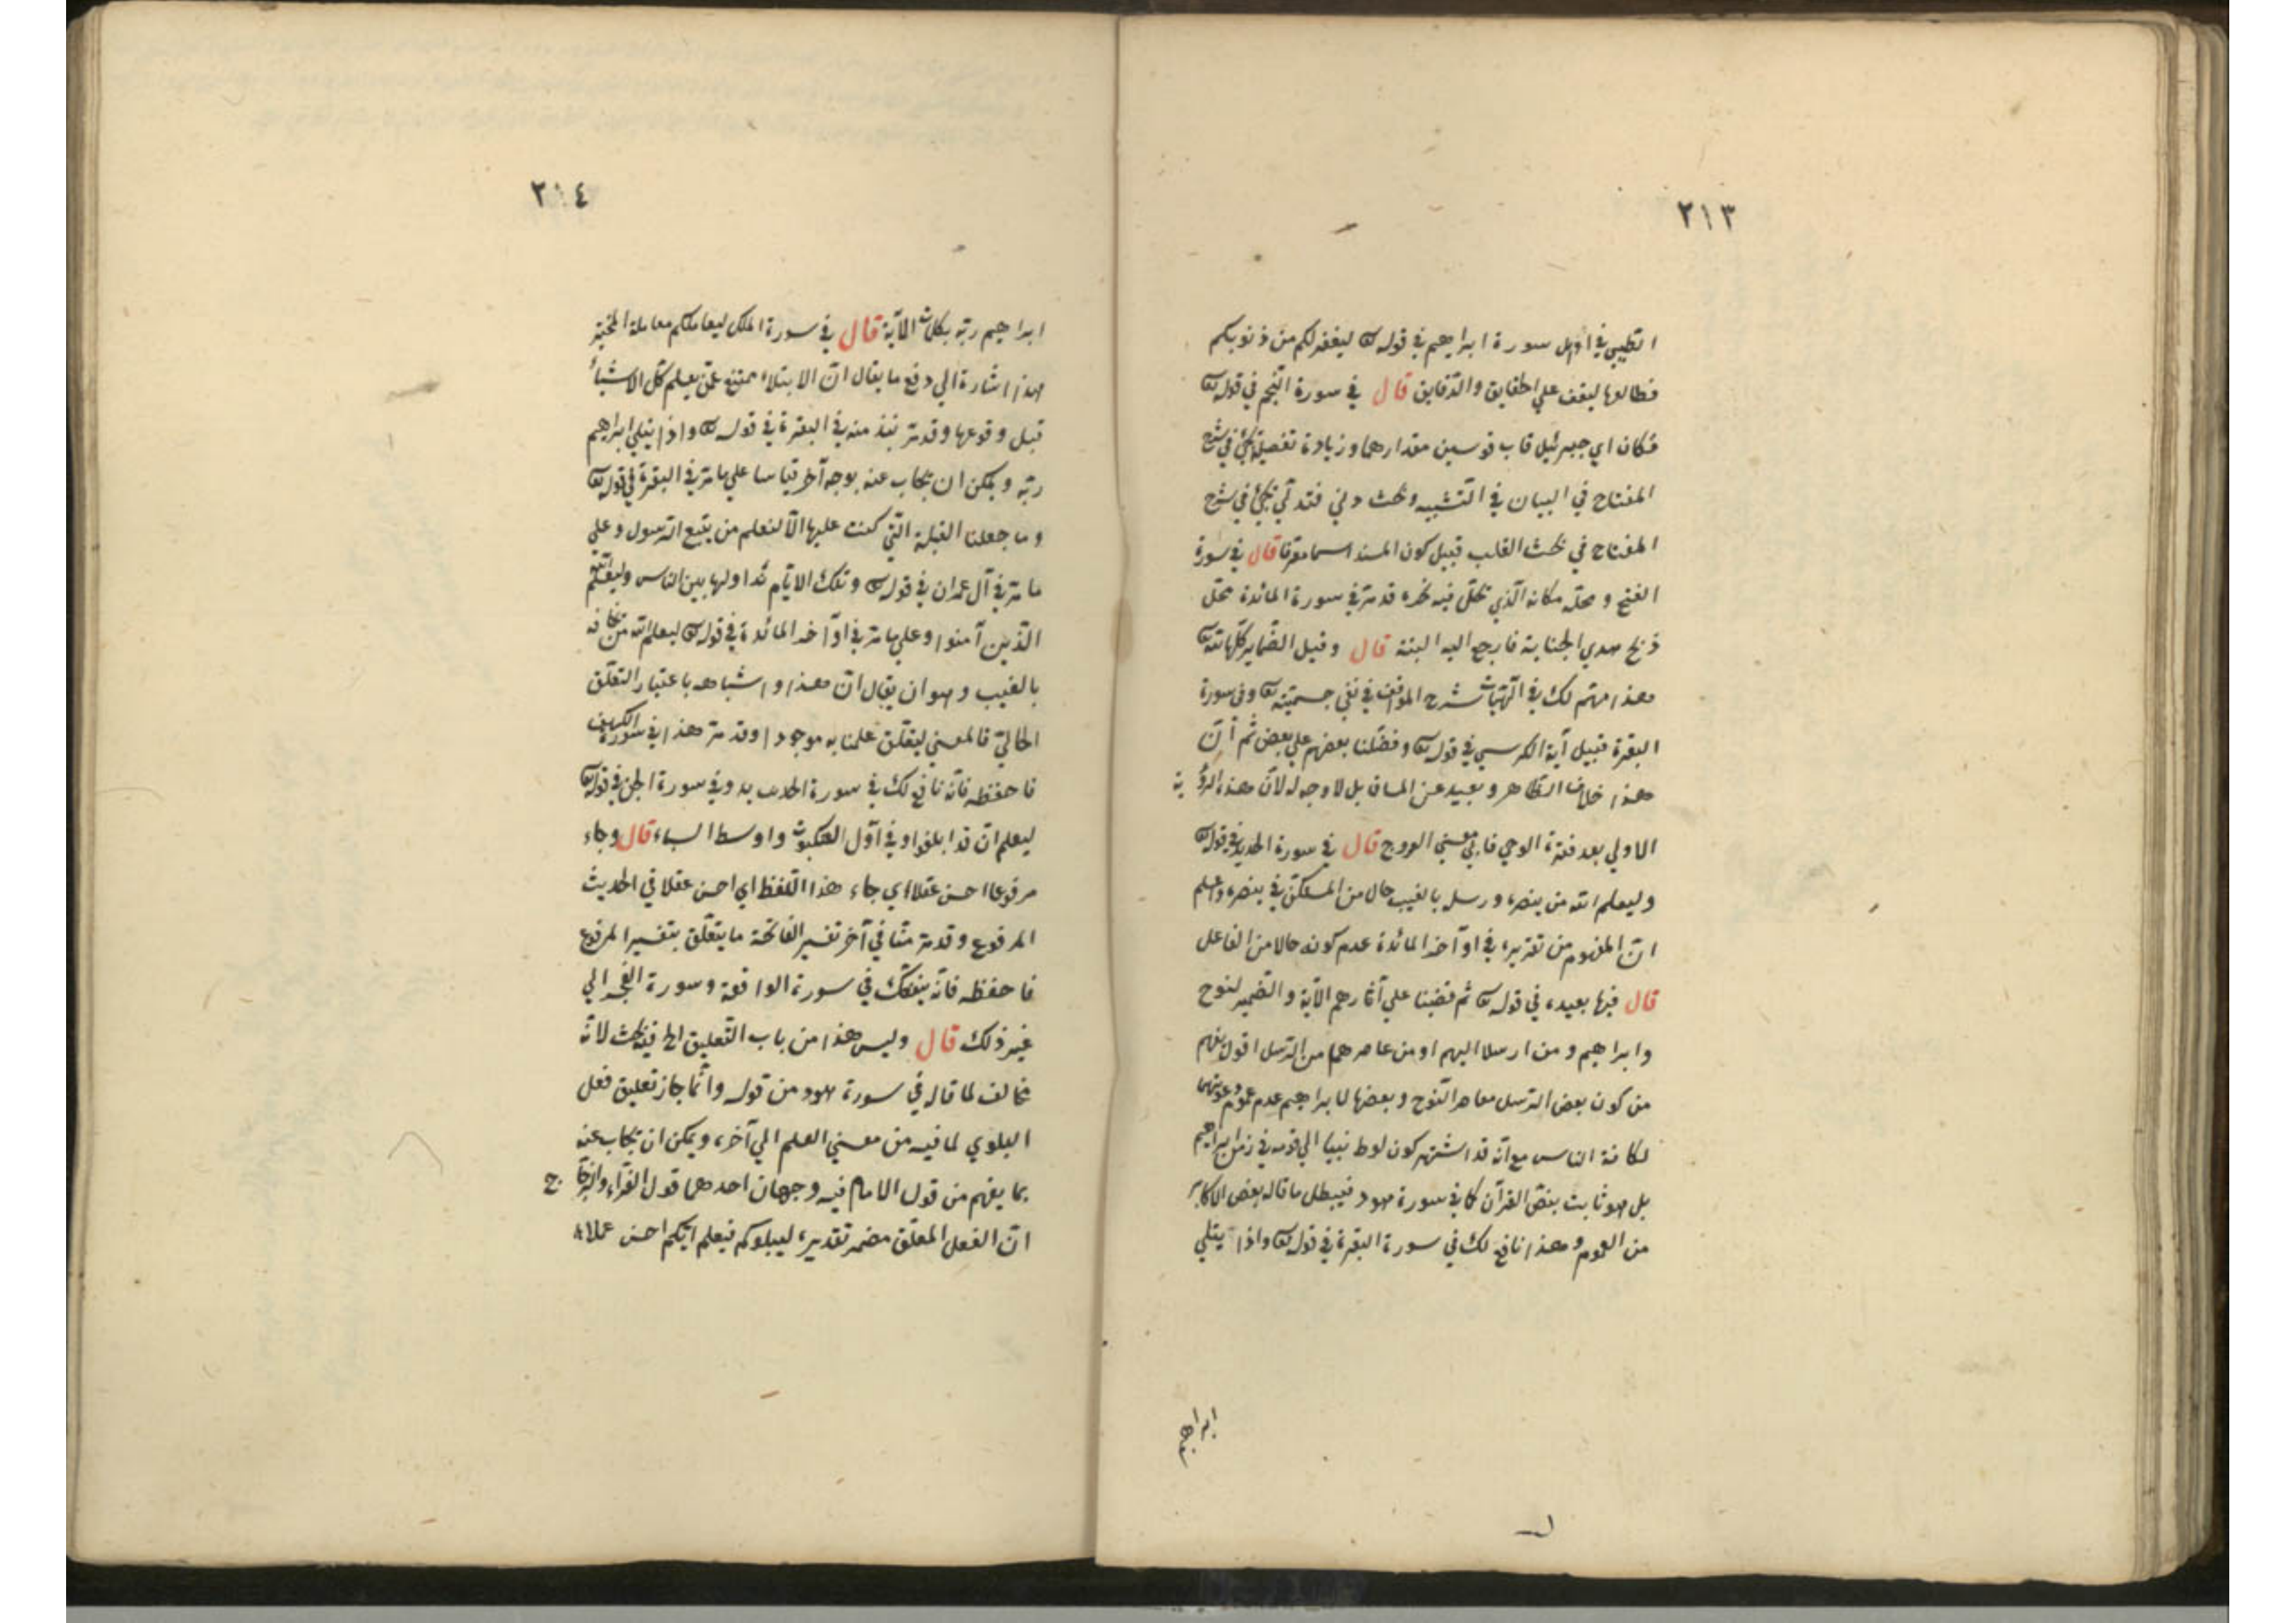 ٢١٣
الطيبي في اوّل سورة ابراهيم في قوله تعا ليغفر لكم من ذنوبكم
فطالعها ليقف علي الحقايق والدّقايق قال في سورة النّجم في قوله تعا
فكان اي جبرئيل قاب قوسين مقدارهما وزيادة تفصيله يجيء في شرح
المفتاح في البيان في التّشبيه وبحث دني فتدلّي يجيء في شرح
المفتاح في بحث القلب قبيل كون المسند اسما معرّفا قال في سورة
الفتح ومحلّه مكانه الّذي يحلّ فيه نحره قد مرّ في سورة المائدة محلّ
ذبح هدي الجناية فارجع اليه البتة قال وقيل الضّماير كلّها لله تعا
هذا مهتم لك في الهيّات شرح المواقف في نفي جسميّته تعا وفي سورة
البقرة قبيل آية الكرسي في قوله تعا وفضّلنا بعضهم علي بعض ثم انّ
هذا خلاف الظّاهر وبعيد عن المساق بل لا وجه له لانّ هذه الرؤية
الاولي بعد فترة الوحي فايّ معني العروج قال في سورة الحديد في قوله تعا
وليعلم الله من ينصره ورسله بالغيب حال من المستكنّ في ينصره واعلم
انّ المفهوم من تقريره في اوآخر المائدة عدم كونه حالا من الفاعل
قال فيها بعيده في قوله تعا ثم قفّينا علي آثارهم الآية والضّمير لنوح
وابراهيم ومن ارسلا اليهم او من عاصرهما من الرّسل اقول يفهم
من كون بعض الرّسل معاصر النّوح وبعضها لابراهيم عدم عموم دعوتهما
لكافة الناس مع انّه قد اشتهر كون لوط نبيا الي قومه في زمن ابراهيم
بل هو ثابت بنصّ القرآن كما في سورة هود فيبطل ما قاله بعض الاكابر
من العموم وهذا نافع لك في سورة البقرة في قوله تعا واذ ابتلي
ابراهيم
٢١٤
ابراهيم ربّه بكلمات الآية قال في سورة الملك ليعاملكم معاملة المختبر
هذا اشارة الي دفع ما يقال انّ الابتلاء ممتنع ممّن يعلم كلّ الاشياء
قبل وقوعها وقد مرّ نبذ منه في البقرة في قوله تعا واذ ابتلي ابراهيم
ربّه ويمكن ان يجاب عنه بوجه آخر قياسا علي ما مرّ في البقرة في قوله تعا
وما جعلنا القبلة الّتي كنت عليها الّا لنعلم من يتبع الرّسول وعلي
ما مرّ في آل عمران في قوله تعا وتلك الايّام نداولها بين الناس وليعلم الله
الّذين آمنوا وعلي ما مرّ في اوآخر المائدة في قوله تعا ليعلم الله من يخافه
بالغيب وهو ان يقال انّ هذا واشباهه باعتبار التعلّق
الحاليّ فالمعني ليتعلّق علمنا به موجودا وقد مرّ هذا في سورة الكهف
فاحفظه فانّه نافع لك في سورة الحديد وفي سورة الجنّ في قوله تعا
ليعلم ان قد ابلغوا وفي اوّل العنكبوت واوسط السباء قال وجاء
مرفوعا احسن عقلا اي جاء هذا اللّفظ اي احسن عقلا في الحديث
المرفوع وقد مرّ منّا في آخر تفسير الفاتحة ما يتعلّق بتفسير المرفوع
فاحفظه فانّه ينفعك في سورة الواقعة وسورة الفجر الي
غير ذلك قال وليس هذا من باب التّعليق الخ فيه بحث لانّه
مخالف لما قاله في سورة هود من قوله وانّما جاز تعليق فعل
البلوي لما فيه من معني العلم الي آخره ويمكن ان يجاب عنه
بما يفهم من قول الامام فيه وجهان احدهما قول الفرّاء والزجّاج
انّ الفعل المعلّق مضمر تقديره ليبلوكم فيعلم ايّكم احسن عملا